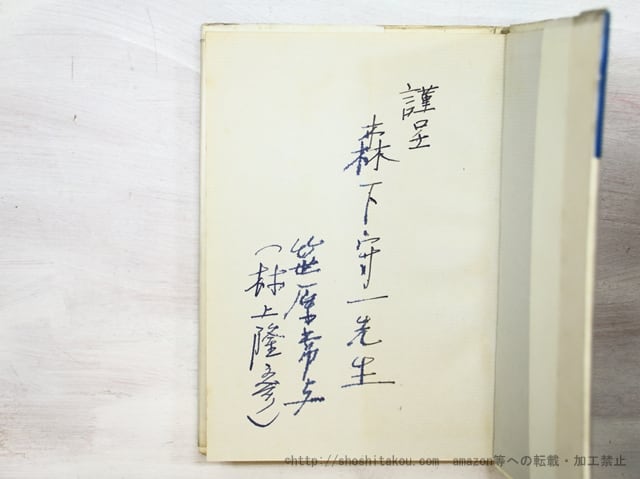 謹呈
森下守一先生
笹原常与
（村上隆彦）
©http://shoshitakou.com amazon等への転載・加工禁止